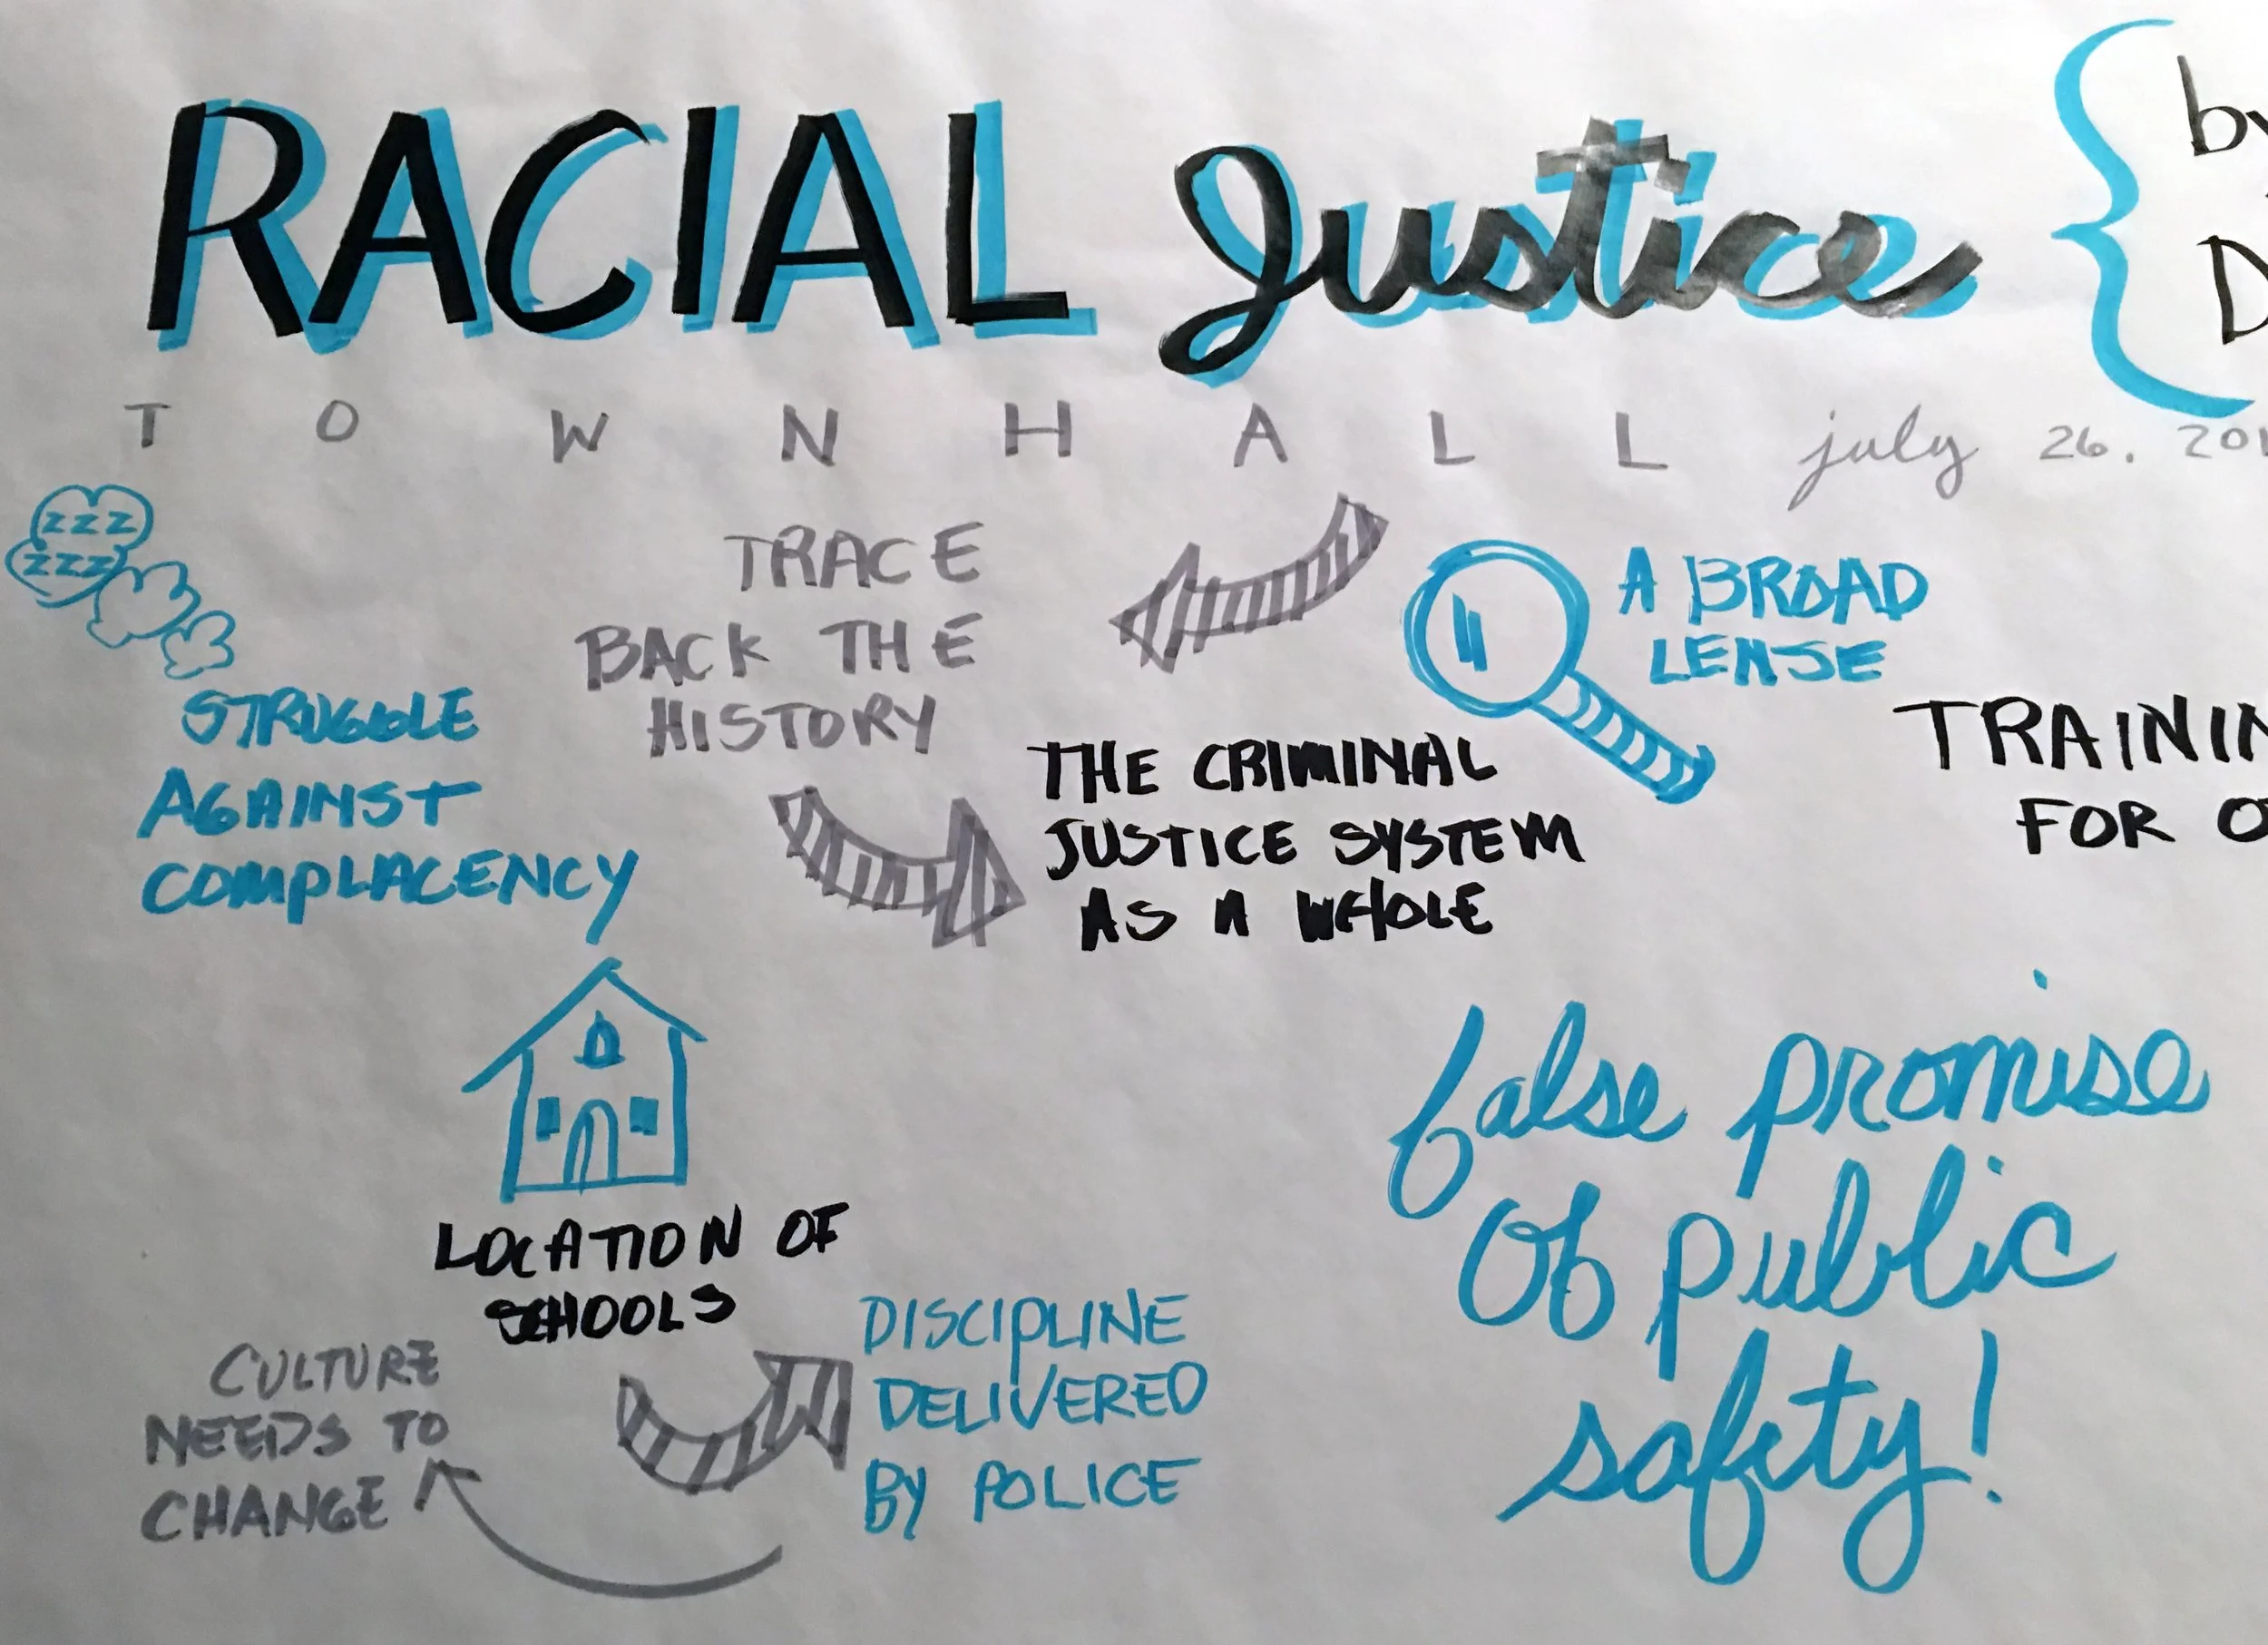 RACIAL Justice
by
TOWN HALL july 26. 201
zzz
zzz
STRUGGLE
AGAINST
COMPLACENCY
TRACE
BACK THE
HISTORY
A BROAD
LENSE
THE CRIMINAL
JUSTICE SYSTEM
AS A WHOLE
TRAININ
FOR O
LOCATION OF
SCHOOLS
DISCIPLINE
DELIVERED
BY POLICE
CULTURE
NEEDS TO
CHANGE
false promise
of public
safety!